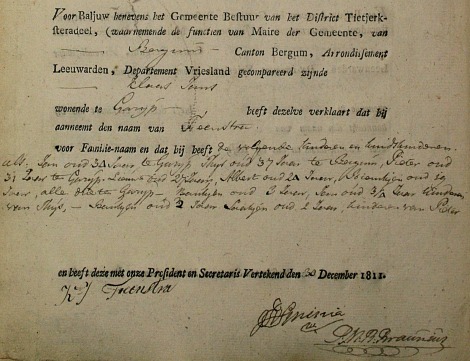 Voor Baljuw benevens het Gemeente Bestuur van het District Tietjerk-
steradeel, (waarnemende de functien van Maire der Gemeente, van
Bergum Canton Bergum, Arrondissement
Leeuwarden, Departement Vriesland gecompareerd zijnde
Klaas Jans
wonende te Garyp, heeft dezelve verklaart dat hij
aanneemt den naam van Feenstra
voor Familie-naam en dat hij heeft de volgende kinderen en kindskinderen
als. Jan oud 34 Jaar te Garyp, Thys oud 37 Jaar te Bergum, Pieter oud
31 Jaar te Garyp Albert oud 24 Jaar,
Jaar, alle die te Garyp oud 6 Jaar, Jan oud Jaar kinderen
van Thys, oud 2 Jaar oud 2 Jaar, kinderen van Pieter
en heeft deze met onze President en Secretaris Vertekend den December 1811.
K J Feenstra